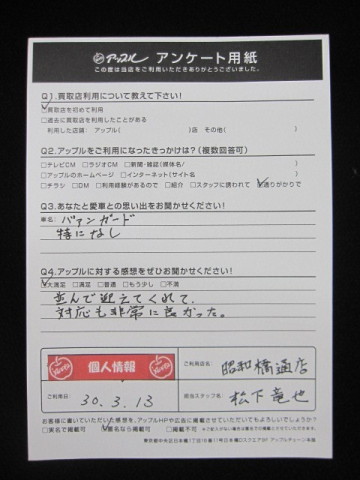 アップル アンケート用紙
この度は当店をご利用いただきありがとうございました。
Q1.買取店利用について教えて下さい!
☑買取店を初めて利用
□過去に買取店を利用したことがある
利用した店舗: アップル( )店 その他( )
Q2.アップルをご利用になったきっかけは?(複数回答可)
□テレビCM □ラジオCM □新聞・雑誌(媒体名/ )
□アップルのホームページ □インターネット(サイト名 )
□チラシ □DM □利用経験があるので □紹介 □スタッフに誘われて ☑通りがかりで
Q3.あなたと愛車との思い出をお聞かせください!
車名: バァンガード
特になし
Q4.アップルに対する感想をぜひお聞かせください!
☑大満足 □満足 □普通 □もう少し □不満
並んで迎えてくれて、
対応も非常に良かった。
個人情報
ご利用店名: 昭和橋通店
ご利用日 30.3.13
担当スタッフ名: 松下竜也
お客様に書いていただいた感想を、アップルHPや広告に掲載させていただいてもよろしいでしょうか?
□実名で掲載可 ☑匿名なら掲載可 □掲載不可